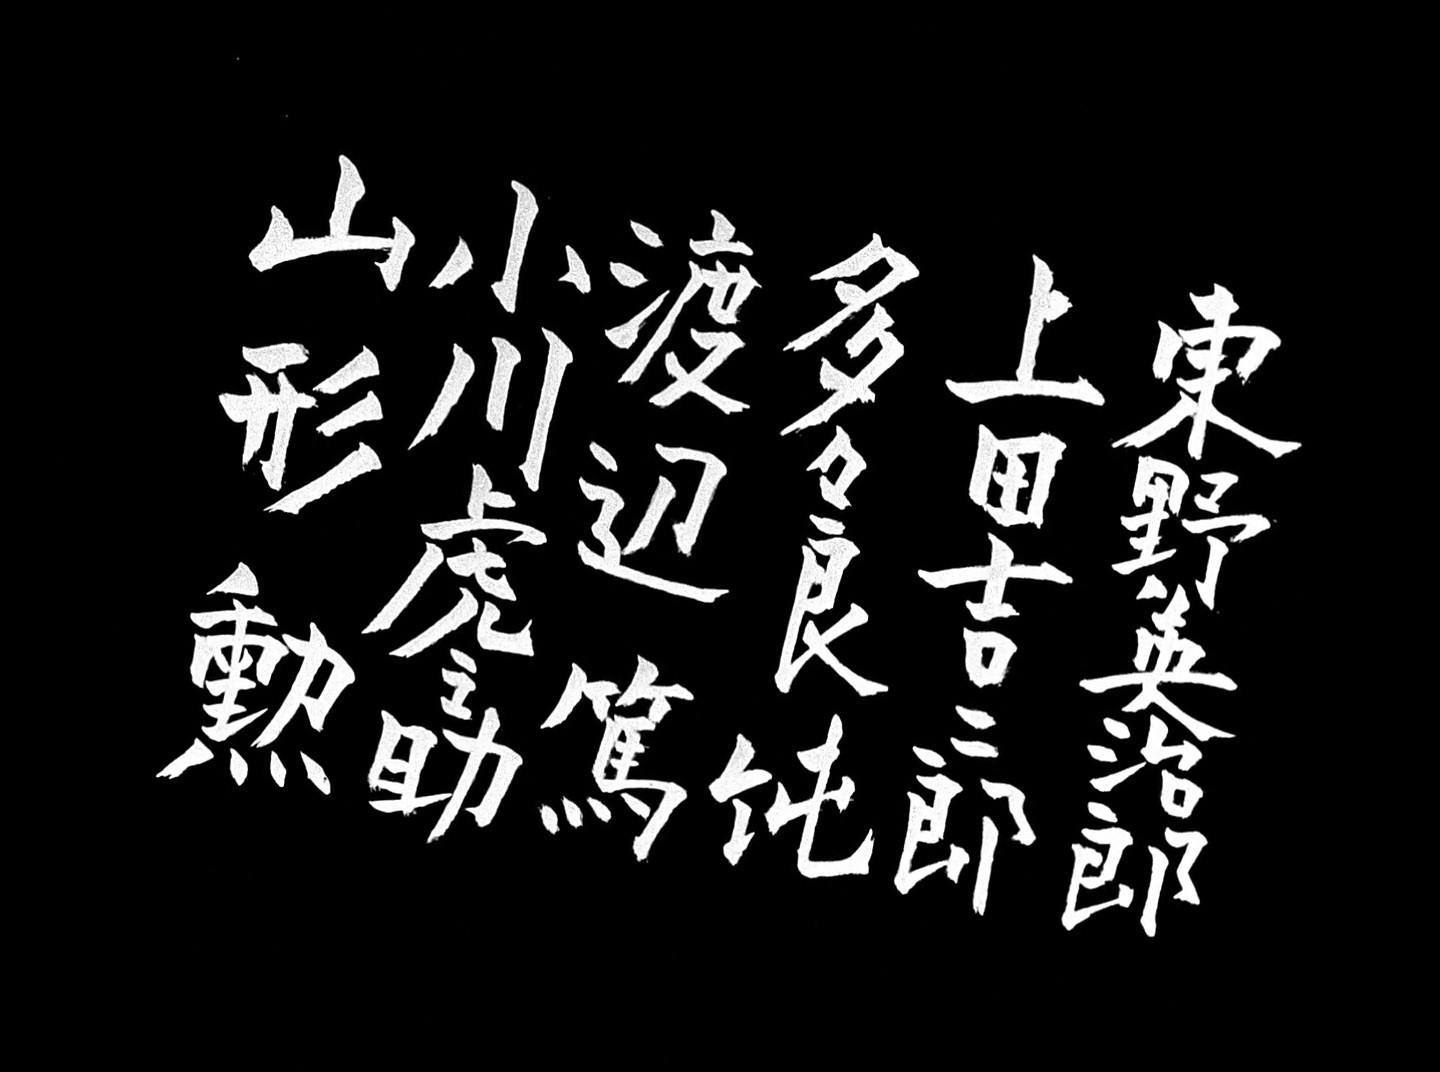 東野英治郎
上田吉二郎
多々良純
渡辺篤
小川虎之助
山形勲